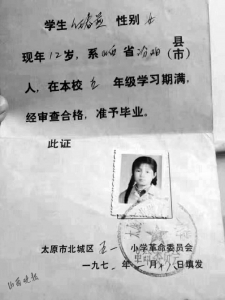 学生 性别 女
现年12岁，系山西省汾阳县（市）
人，在本校五年级学习期满，
经审查合格，准予毕业。
此证
太原市北城区五一小学革命委员会
一九七 年 月 日填发
山西晚报